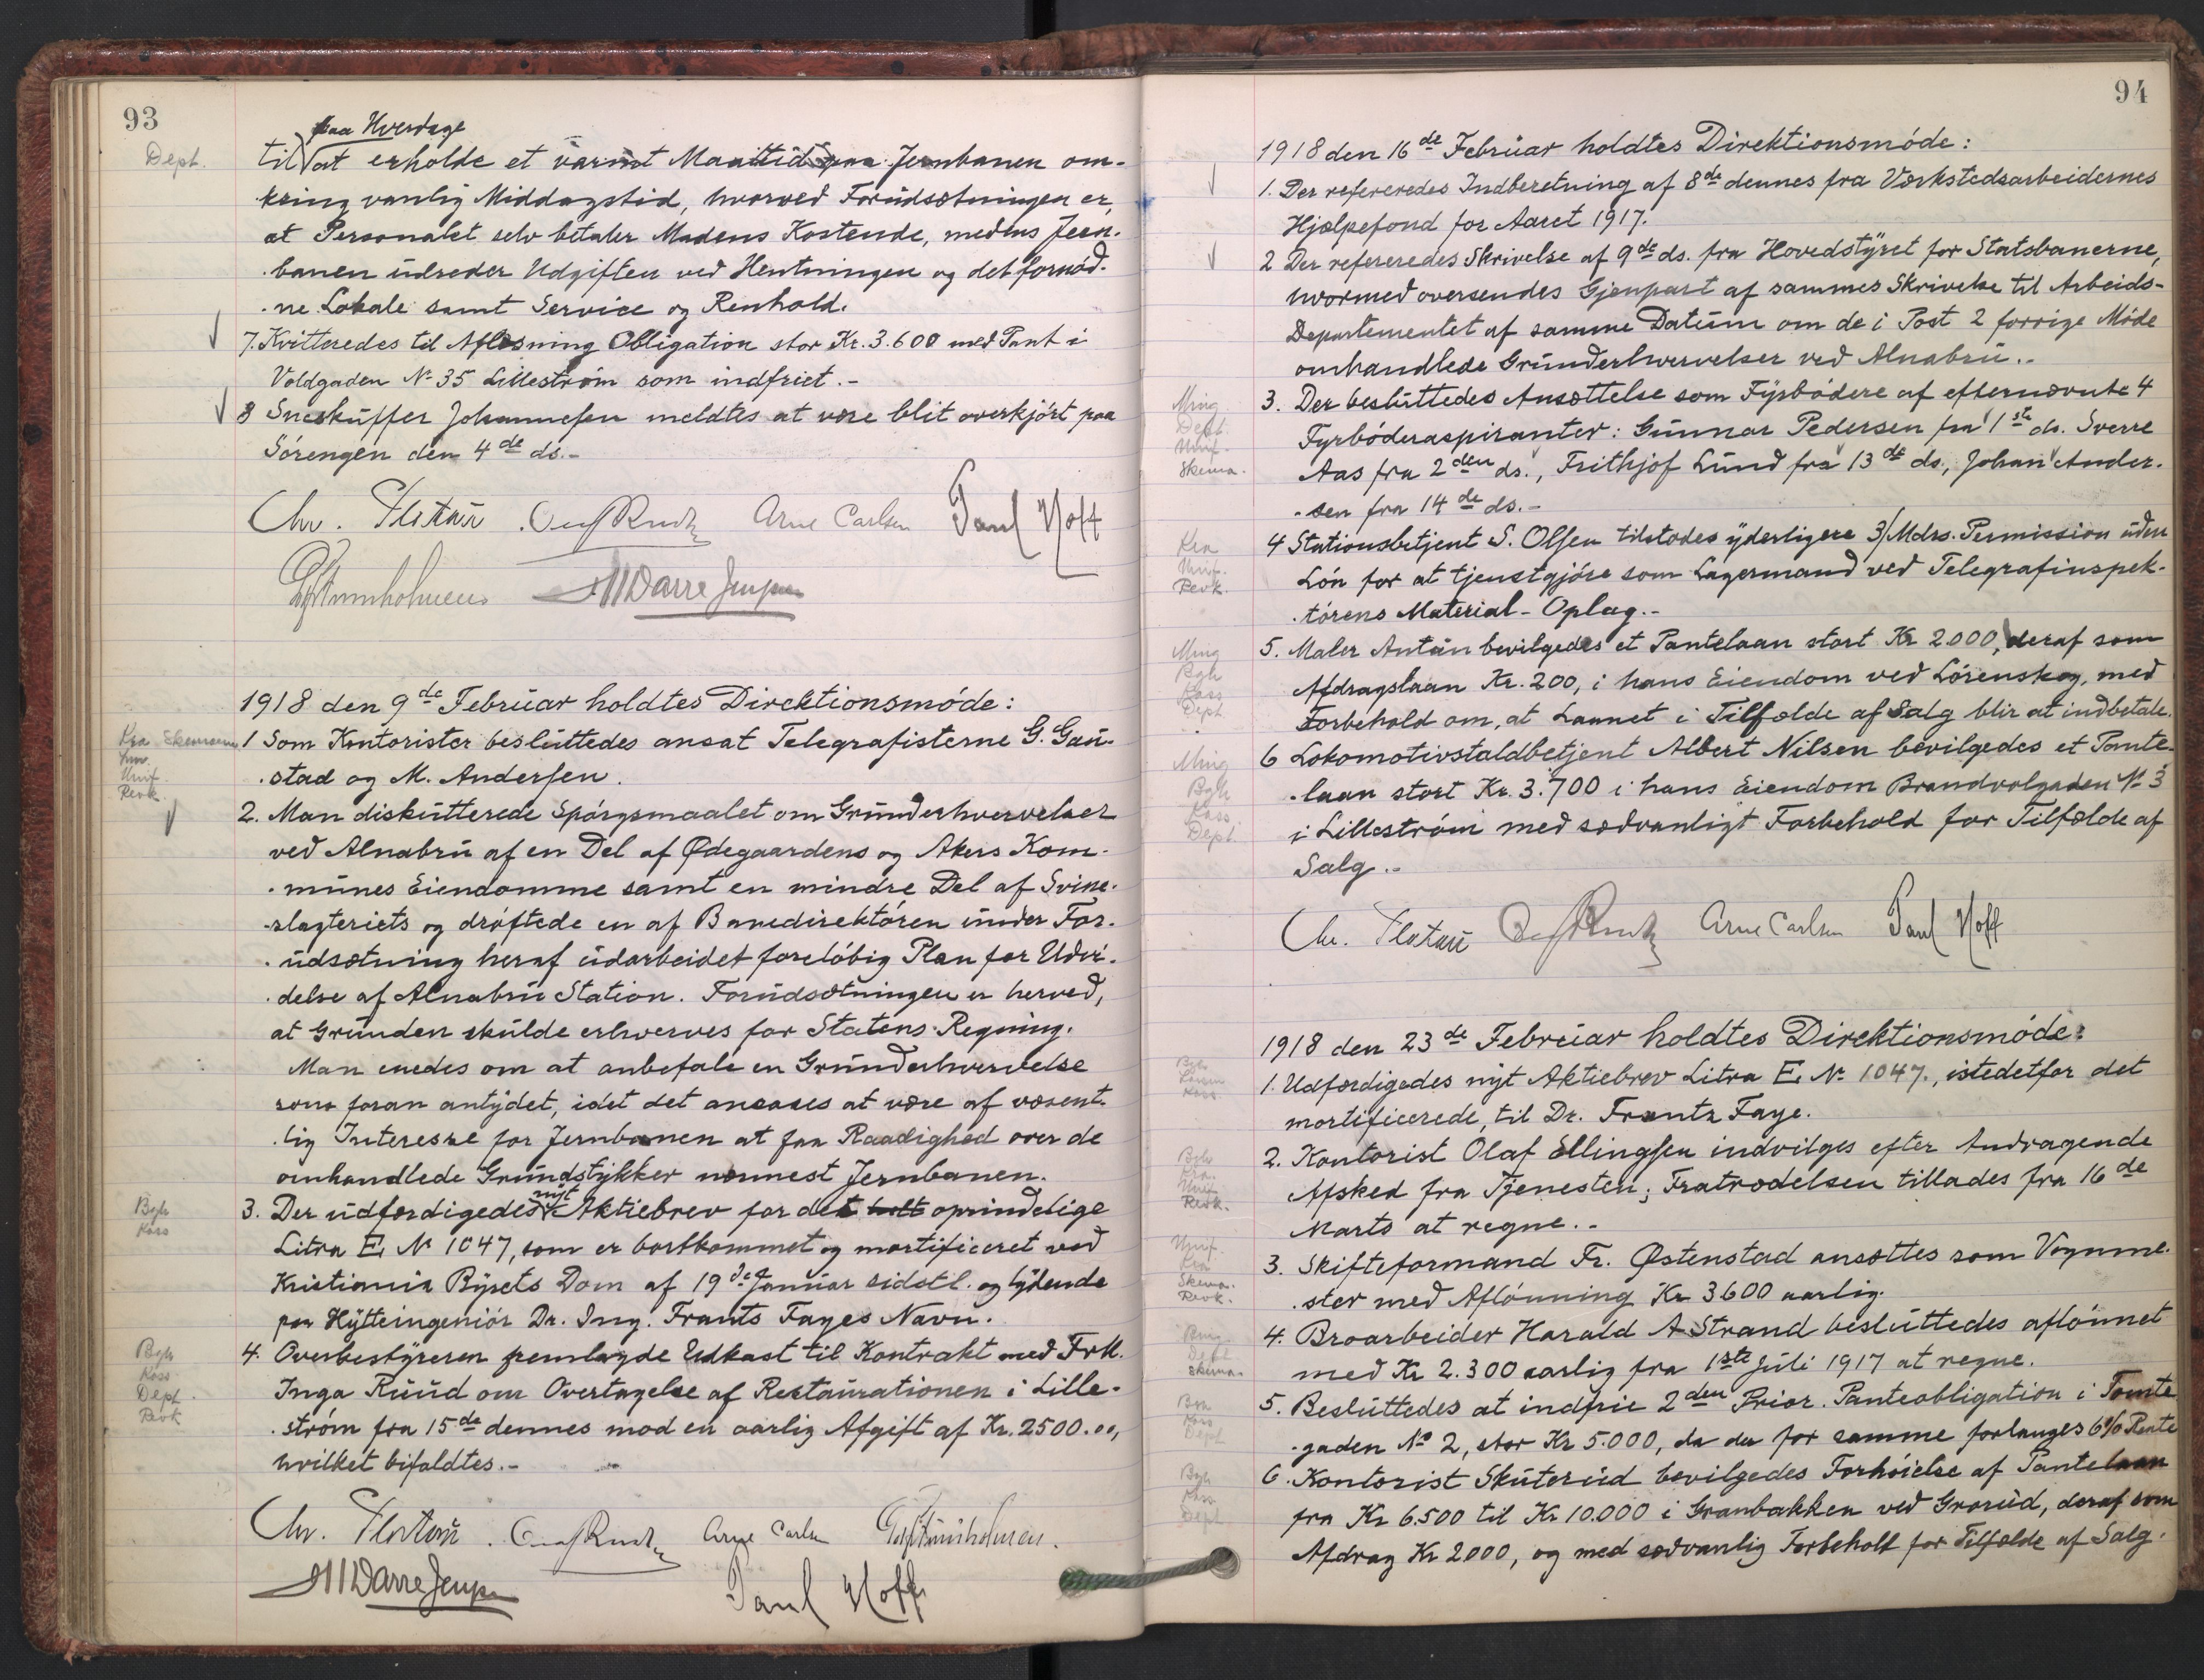 93
paa Hverdage
Dept.
til at erholde et varmt Maaltid paa Jernbanen om-
kring vanlig Middagstid, hvorved Forudsætningen er,
at Personalet selv betaler Madens Kostende, medens Jern-
banen udreder Udgiften ved Hentningen og det fornød-
ne Lokale samt Service og Renhold.
7. Kvitteredes til Aflæsning Obligation stor Kr. 3.600 med Pant i
Voldgaden № 35 Lillestrøm som indfriet.-
8 Sneskuffer Johannesen meldtes at være blit overkjørt paa
Sørengen den 4de ds.-
Chr. Platou Arne Carlsen Paul Hoff
1918 den 9de Februar holdtes Direktionsmøde:
1 Som Kontorister besluttedes ansat Telegrafisterne G. Gau-
stad og M. Andersen.
Kra Unif. Revk.
2. Man diskutterede Spørgsmaalet om Grunderhvervelser
ved Alnabru af en Del af Ødegaardens og Akers Kom-
munes Eiendomme samt en mindre Del af Svine-
slagteriets og drøftede en af Banedirektøren under For-
udsætning heraf udarbeidet foreløbig Plan for Udvi-
delse af Alnabru Station. Forudsætningen er herved,
at Grunden skulde erhverves for Statens Regning.
Man enedes om at anbefale en Grunderhvervelse
som foran antydet, idet det ansaaes at være af væsent-
lig Interesse for Jernbanen at faa Raadighed over de
omhandlede Grundstykker nærmest Jernbanen.
Bgh Kass
3. Der udfærdigedes nyt Aktiebrev for det oprindelige
Litra E, № 1047, som er bortkommet og mortificeret ved
Kristiania Byrets Dom af 19de Januar sidstl. og lydende
paa Hytteingeniør Dr. Ing. Frants Fayes Navn.
Bgh Kass Dept. Revk
4. Overbestyreren fremlagde Udkast til Kontrakt med Frk.
Inga Ruud om Overtagelse af Restaurationen i Lille-
strøm fra 15de dennes mod en aarlig Afgift af Kr. 2500.00,
hvilket bifaldtes.-
Chr. Platou Arne Carlsen
Paul Hoff
94
1918 den 16de Februar holdtes Direktionsmøde:
1. Der refereredes Indberetning af 8de dennes fra Værkstedsarbeidernes
Hjælpefond for Aaret 1917.
2 Der refereredes Skrivelse af 9de ds. fra Hovedstyret for Statsbanerne,
hvormed oversendes Gjenpart af sammes Skrivelse til Arbeids-
Departementet af samme Datum om de i Post 2 forrige Møde
omhandlede Grunderhvervelser ved Alnabru.-
Ming Dept. Unif. Skema.
3. Der besluttedes Ansættelse som Fyrbødere af efternævnte 4
Fyrbøderaspiranter: Gunnar Pedersen fra 1ste ds. Sverre
Aas fra 2den ds., Frithjof Lund fra 13de ds., Johan Ander-
sen fra 14de ds.-
Kra Unif. Revk.
4 Stationsbetjent S. Olsen tilstodes yderligere 3/Mdrs. Permission uden
Løn for at tjenstgjøre som Lagermand ved Telegrafinspek-
tørens Material-Oplag.-
Ming Bgh Kass Dept
5. Maler Antun bevilgedes et Pantelaan stort Kr 2000, deraf som
Afdragslaan Kr. 200, i hans Eiendom ved Lørenskog, med
Forbehold om, at Laanet i Tilfælde af Salg blir at indbetale.
Ming Bgh Kass Dept.
6 Lokomotivstaldbetjent Albert Nilsen bevilgedes et Pante-
laan stort Kr. 3.700 i hans Eiendom Brandvolgaden № 3
i Lillestrøm med sædvanligt Forbehold for Tilfælde af
Salg.-
Chr. Platou Arne Carlsen Paul Hoff
1918 den 23de Februar holdtes Direktionsmøde:
1. Udfærdigedes nyt Aktiebrev Litra E, № 1047, istedetfor det
mortificerede, til Dr. Frantz Faye.
2. Kontorist Olaf Ellingsen indvilges efter Andragende
Afsked fra Tjenesten; Fratrædelsen tillades fra 16de
Marts at regne.-
Unif. Kra Skema. Revk.
3. Skifteformand Fr. Østenstad ansættes som Vognme-
ster med Aflønning Kr 3600 aarlig.
4. Broarbeider Harald A Strand besluttedes aflønnet
med Kr 2.300 aarlig fra 1ste Juli 1917 at regne.
5. Besluttedes at indfrie 2den Prior. Panteobligation i Tomte-
gaden № 2, stor Kr 5.000, da der for samme forlanges 6% Rente
6. Kontorist Skuterud bevilgedes Forhøielse af Pantelaan
fra Kr 6.500 til Kr 10.000 i Granbakken ved Grorud, deraf som
Afdrag Kr 2000, og med sædvanlig Forbehold for Tilfælde af Salg.